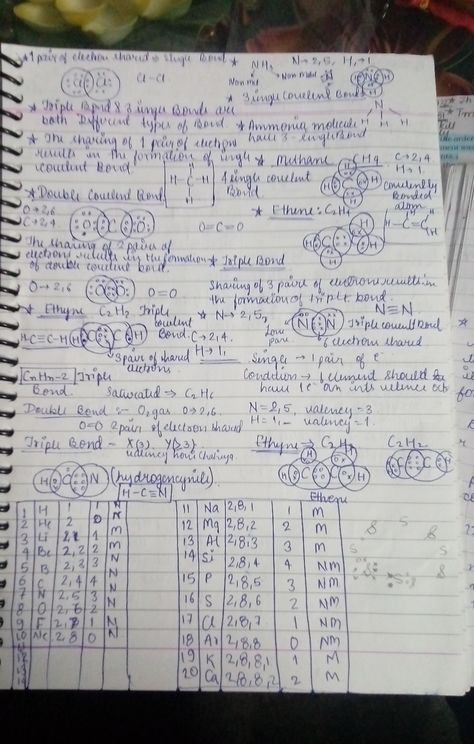 ★ 1 pair of electron shared ⇒ Single Bond ★
NH3 N→2,5, H→1
Cl Cl Cl–Cl
Non metal Non Metal H N H
★ 3 single Covalent Bond
★ Triple Bond & 3 single Bonds are
both Different types of Bond.
N
H H
★ Ammonia molecule
have 3-single Bond
★ The sharing of 1 pair of electron
results in the formation of single
covalent Bond.
★ Methane CH4 C→2,4
H→1
H
H–C–H
H
4 single covalent
Bond
covalently
Bonded
atom
★ Double Covalent Bond
O→2,6
C→2,4
O C O
O=C=O
★ Ethene: C2H4
H H C C H H
The sharing of 2 pairs of
electrons results in the formation
of double covalent bond.
★ Triple Bond
O→2,6 O O O=O
Sharing of 3 pairs of electrons results in
the formation of triple bond.
★ Ethyne C2H2 Triple
covalent
Bond.
★ N→2,5,
N N
N≡N
Triple covalent Bond
lone
pair
6 electrons shared
H–C≡C–H
H C C H
C→2,4.
H→1,
3 pair of shared
electrons
Single → 1 pair of e⁻
CnHn-2 Triple
Bond.
Condition → 1 element should be
have 1e⁻ in its valence
Saturated ⇒ C2H6
Double Bond :– O2 gas. O→2,6.
N=2,5, valency=3.
H=1, – valency=1.
O=O 2 pairs of electron shared
Triple Bond –
Ethyne ⇒ C2H2
C2H2
H C N (hydrogencynide)
H–C≡N
Ethene
1 H 1 1 N
2 He 2 0
3 Li 2,1 1 M
4 Be 2,2 2 M
5 B 2,3 3 N
6 C 2,4 4 N
7 N 2,5 3 N
8 O 2,6 2 N
9 F 2,7 1 N
10 Ne 2,8 0 N
11
12
13
14
11 Na 2,8,1 1 M
12 Mg 2,8,2 2 M
13 Al 2,8,3 3 M
14 Si 2,8,4 4 NM
15 P 2,8,5 3 NM
16 S 2,8,6 2 NM
17 Cl 2,8,7 1 NM
18 Ar 2,8,8 0 NM
19 K 2,8,8,1 1 M
20 Ca 2,8,8,2 2 M
S S S
S S
S S